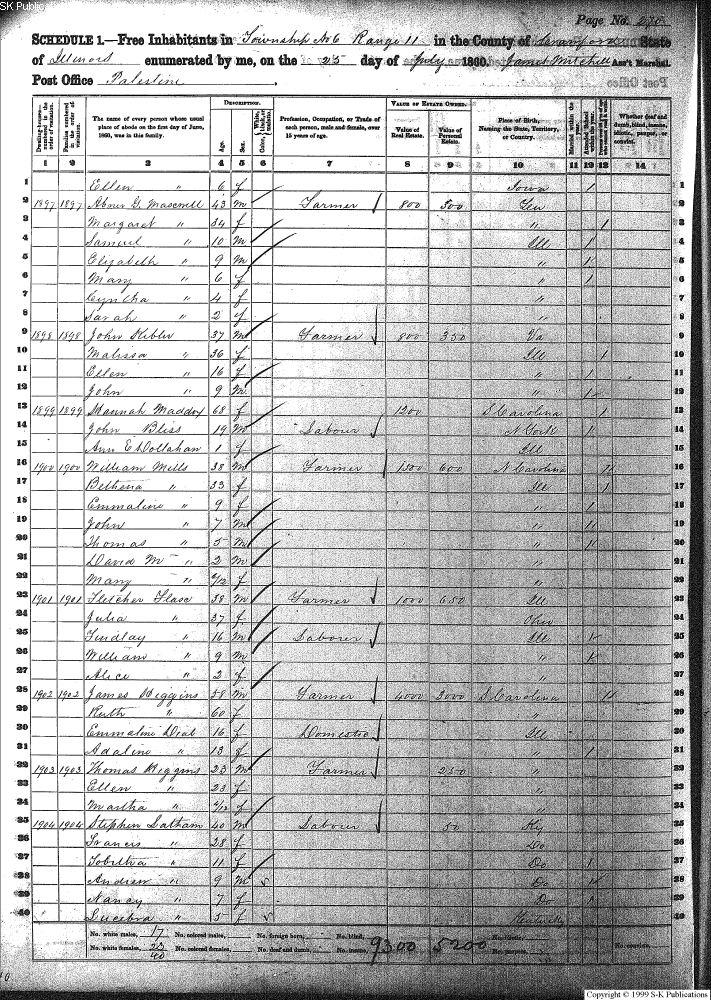 SK Publications
Page No. 270
SCHEDULE 1.—Free Inhabitants in Township No 6 Range 11 in the County of Crawford State
of Illinois enumerated by me, on the 25 day of July 1860. James Mitchell Ass't Marshal.
Post Office Palestine
Dwelling-houses— numbered in the order of visitation.
Families numbered in the order of visitation.
The name of every person whose usual place of abode on the first day of June, 1860, was in this family.
DESCRIPTION.
Age.
Sex.
Color, White, black, or mulatto.
Profession, Occupation, or Trade of each person, male and female, over 15 years of age.
VALUE OF ESTATE OWNED.
Value of Real Estate.
Value of Personal Estate.
Place of Birth, Naming the State, Territory, or Country.
Married within the year.
Attended School within the year.
Whether deaf and dumb, blind, insane, idiotic, pauper, or convict.
1 2 3 4 5 6 7 8 9 10 11 12 13 14
1 Ellen " 6 f Iowa / 1
2 1897 1897 Abner G. Maxwell 43 m Farmer 800 300 Ten 2
3 Margaret " 34 f " / 3
4 Samuel " 10 m Ill / 4
5 Elizabeth " 9 m " / 5
6 Mary " 6 f " / 6
7 Cyntha " 4 f " 7
8 Sarah " 2 f " 8
9 1898 1898 John Kibler 37 m Farmer 800 350 Va 9
10 Malissa " 36 f Ill / 10
11 Ellen " 16 f " / 11
12 John " 9 m " / 12
13 1899 1899 Hannah Maddox 68 f 1200 S Carolina / 13
14 John Bliss 19 m Labour N York / 14
15 Ann E. Dollahan 1 f Ill 15
16 1900 1900 William Mills 38 m Farmer 1500 600 N Carolina 16
17 Bethena " 33 f Ill / 17
18 Emmaline " 9 f " / 18
19 John " 7 m " 19
20 Thomas " 5 m " 20
21 David M " 2 m " 21
22 Mary " f " 22
23 1901 1901 Fletcher 38 m Farmer 1000 650 Ill 23
24 Julia " 37 f Ohio 24
25 Findlay " 16 m Labourer Ill 25
26 William " 9 m " 26
27 Alice " 2 f " 27
28 1902 1902 James Higgins 58 m Farmer 4000 3000 S Carolina 28
29 Ruth " 60 f " 29
30 Emmaline Deal 16 f Domestic Ill 30
31 Adaline " 13 f " / 31
32 1903 1903 Thomas Higgins 23 m Farmer 250 " 32
33 Ellen " 23 f " 33
34 Martha " f " 34
35 1904 1904 Stephen Latham 40 m Labour 50 Ky 35
36 Francis " 28 f Do 36
37 Tobitha " 11 f Do / 37
38 Andrew " 9 m Do 38
39 Nancy " 7 f Do 39
40 " 5 f Kentucky 40
No. white males, 17 No. colored males, No. foreign born, No. blind,
No. white females, 23 No. colored females, No. deaf and dumb, No. insane, 9300 5200 No. idiotic, No. paupers, No. convicts,
40
Copyright © 1999 S-K Publications